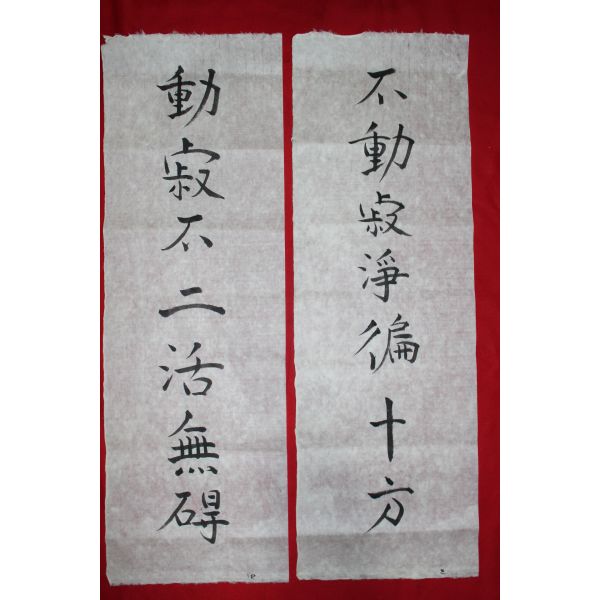 不動寂淨徧十方
動寂不二活無碍